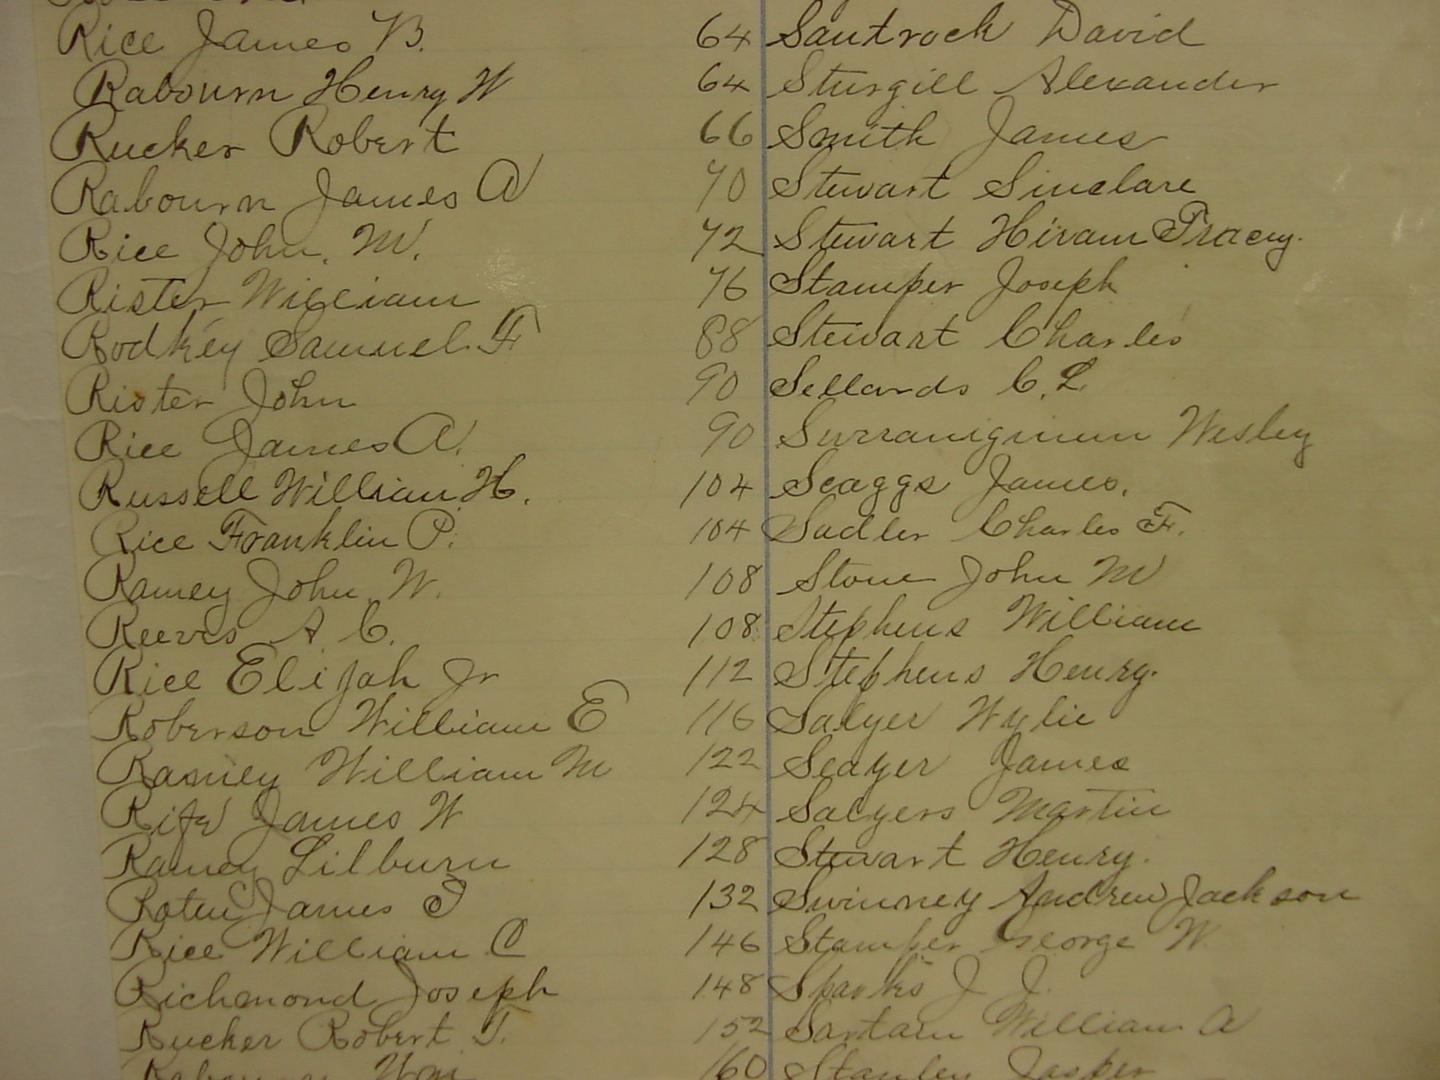 Rice James B. 64 Santrock David
Rabourn Henry W 64 Sturgill Alexander
Rucker Robert 66 Smith James
Rabourn James A 70 Stewart Sinclare
Rice John. M. 72 Stewart Hiram Tracey.
Rister William 76 Stamper Joseph
Rodkey Samuel F 88 Stewart Charles
Rister John 90 Sellards C. L
Rice James A. 90 Wesley
Russell William H. 104 Scaggs James.
Rice Franklin P. 104 Sadler Charles F.
Ramey John W. 108 Stone John M
Reeves A C. 108 Stephens William
Rice Elijah Jr 112 Stephens Henry.
Roberson William E 116 Salyer Wylie
Ramey William M 122 James
Rife James W 124 Salyers Martin
Ramey Lilburn 128 Stewart Henry.
James 132 Swinney Andrew Jackson
Rice William C 146 Stamper George W
Richmond Joseph 148 Sparks J J.
Rucker Robert T. 152 Sartain William A
Rabourn Wm 160 Stanley Jasper